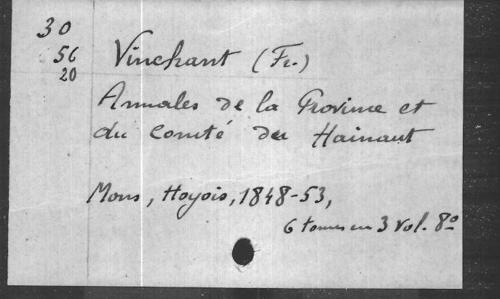 30
56
20
Vinchant (Fr.)
Annales de la Province et
du Comté du Hainaut
Mons, Hoyois, 1848-53,
6 tomes en 3 vol. 8º